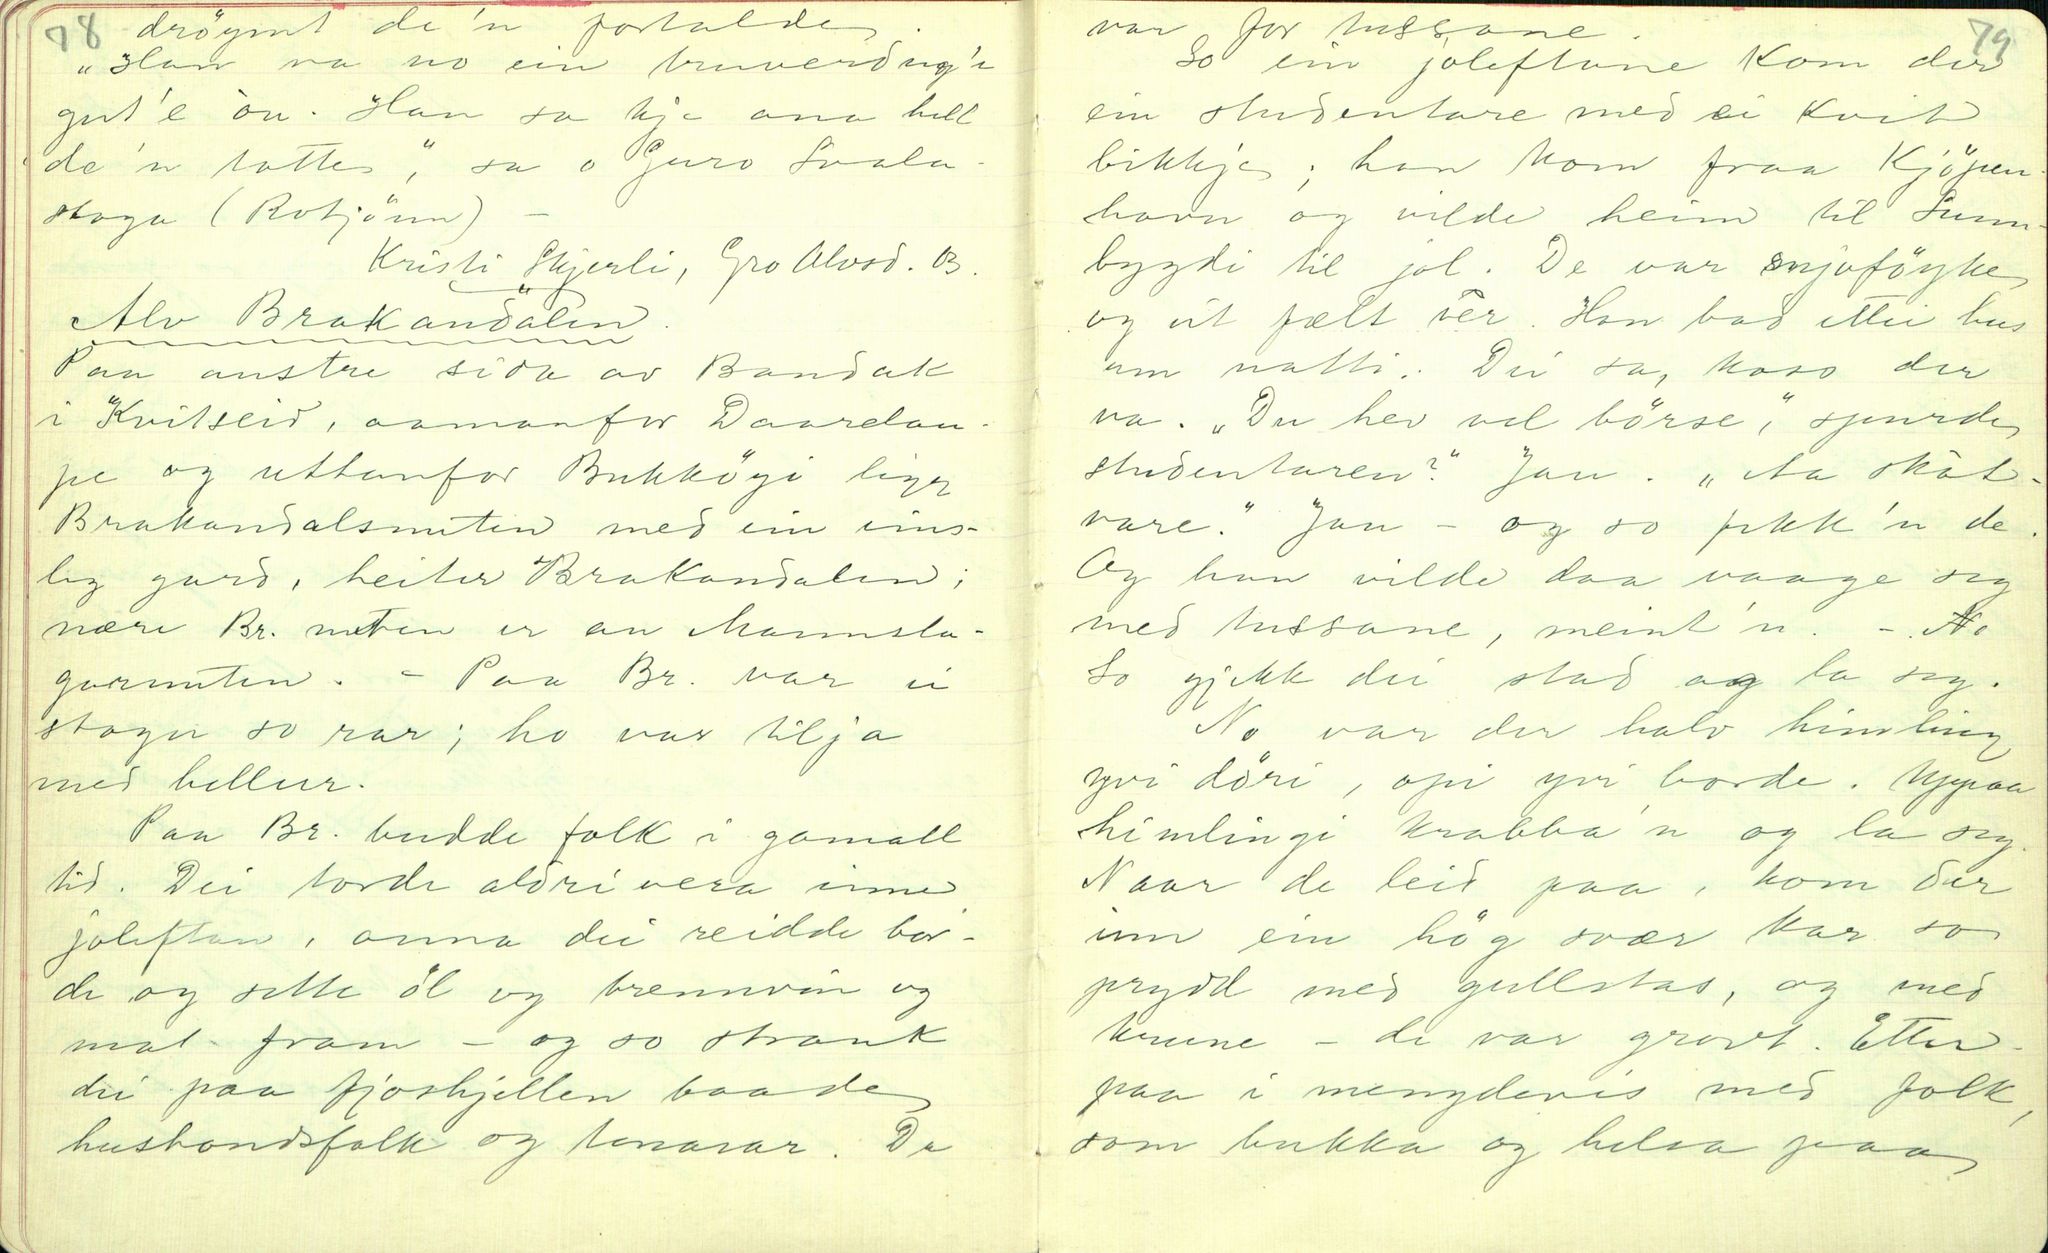 78
drøymt de'n fortalde.
"Han va no ein truverdug'e
gut'e òn. Han sa kje ana hell
de'n totte", sa o Guro Svala-
stoga (Rotjönn) –
Kristi Skjerli, Gro Alvsd. B.
Alv Brakandalen.
Paa austre sida av Bandak
i Kvitseid, aamanfor Daarelau-
pe og uttanfor Bukkøyi ligg
Brakandalsnuten med ein eins-
leg gard, heiter Brakandalen;
nære Br. nuten er an Mannsla-
garnuten. – Paa Br. var ei
stogu so rar; ho var tilja
med hellur.
Paa Br. budde folk i gamall
tid. Dei torde aldri vera inne
joleftan, anna dei reidde bor-
de og sette öl og brennvin og
mat fram – og so strauk
dei paa fjoshjellen baade
husbondsfolk og tenarar. De
79
var for tussane.
So ein joleftane kom der
ein studentare med ei kvit
bikkje; han kom fraa Kjöpen-
havn og vilde heim til Sunn-
bygdi til jol. De var snjoföyke
og eit fælt vêr. Han bad ettei hus
um natti. Dei sa, koso der
va. "Du hev vel börse," spurde
studentaren?" Jau. "Aa skòt-
vare." Jau – og so fekk'n de.
Og han vilde daa vaage seg
med tussane, meint'n. –
So gjekk dei stad og la seg.
No var der halv himling
yvi döri, opi yvi borde. Uppaa
himlingi krabba'n og la seg.
Naar de leid paa, kom der
inn ein hög svær kar so
prydd med gullstas, og med
krune – de var grovt. Etter-
paa i mengdevis med folk,
som bukka og helsa paa